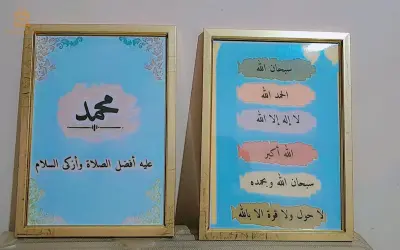 محمد
عليه أفضل الصلاة وأزكى السلام
سبحان الله
الحمد الله
لا إله إلا الله
الله أكبر
سبحان الله وبحمده
لا حول ولا قوة الا بالله